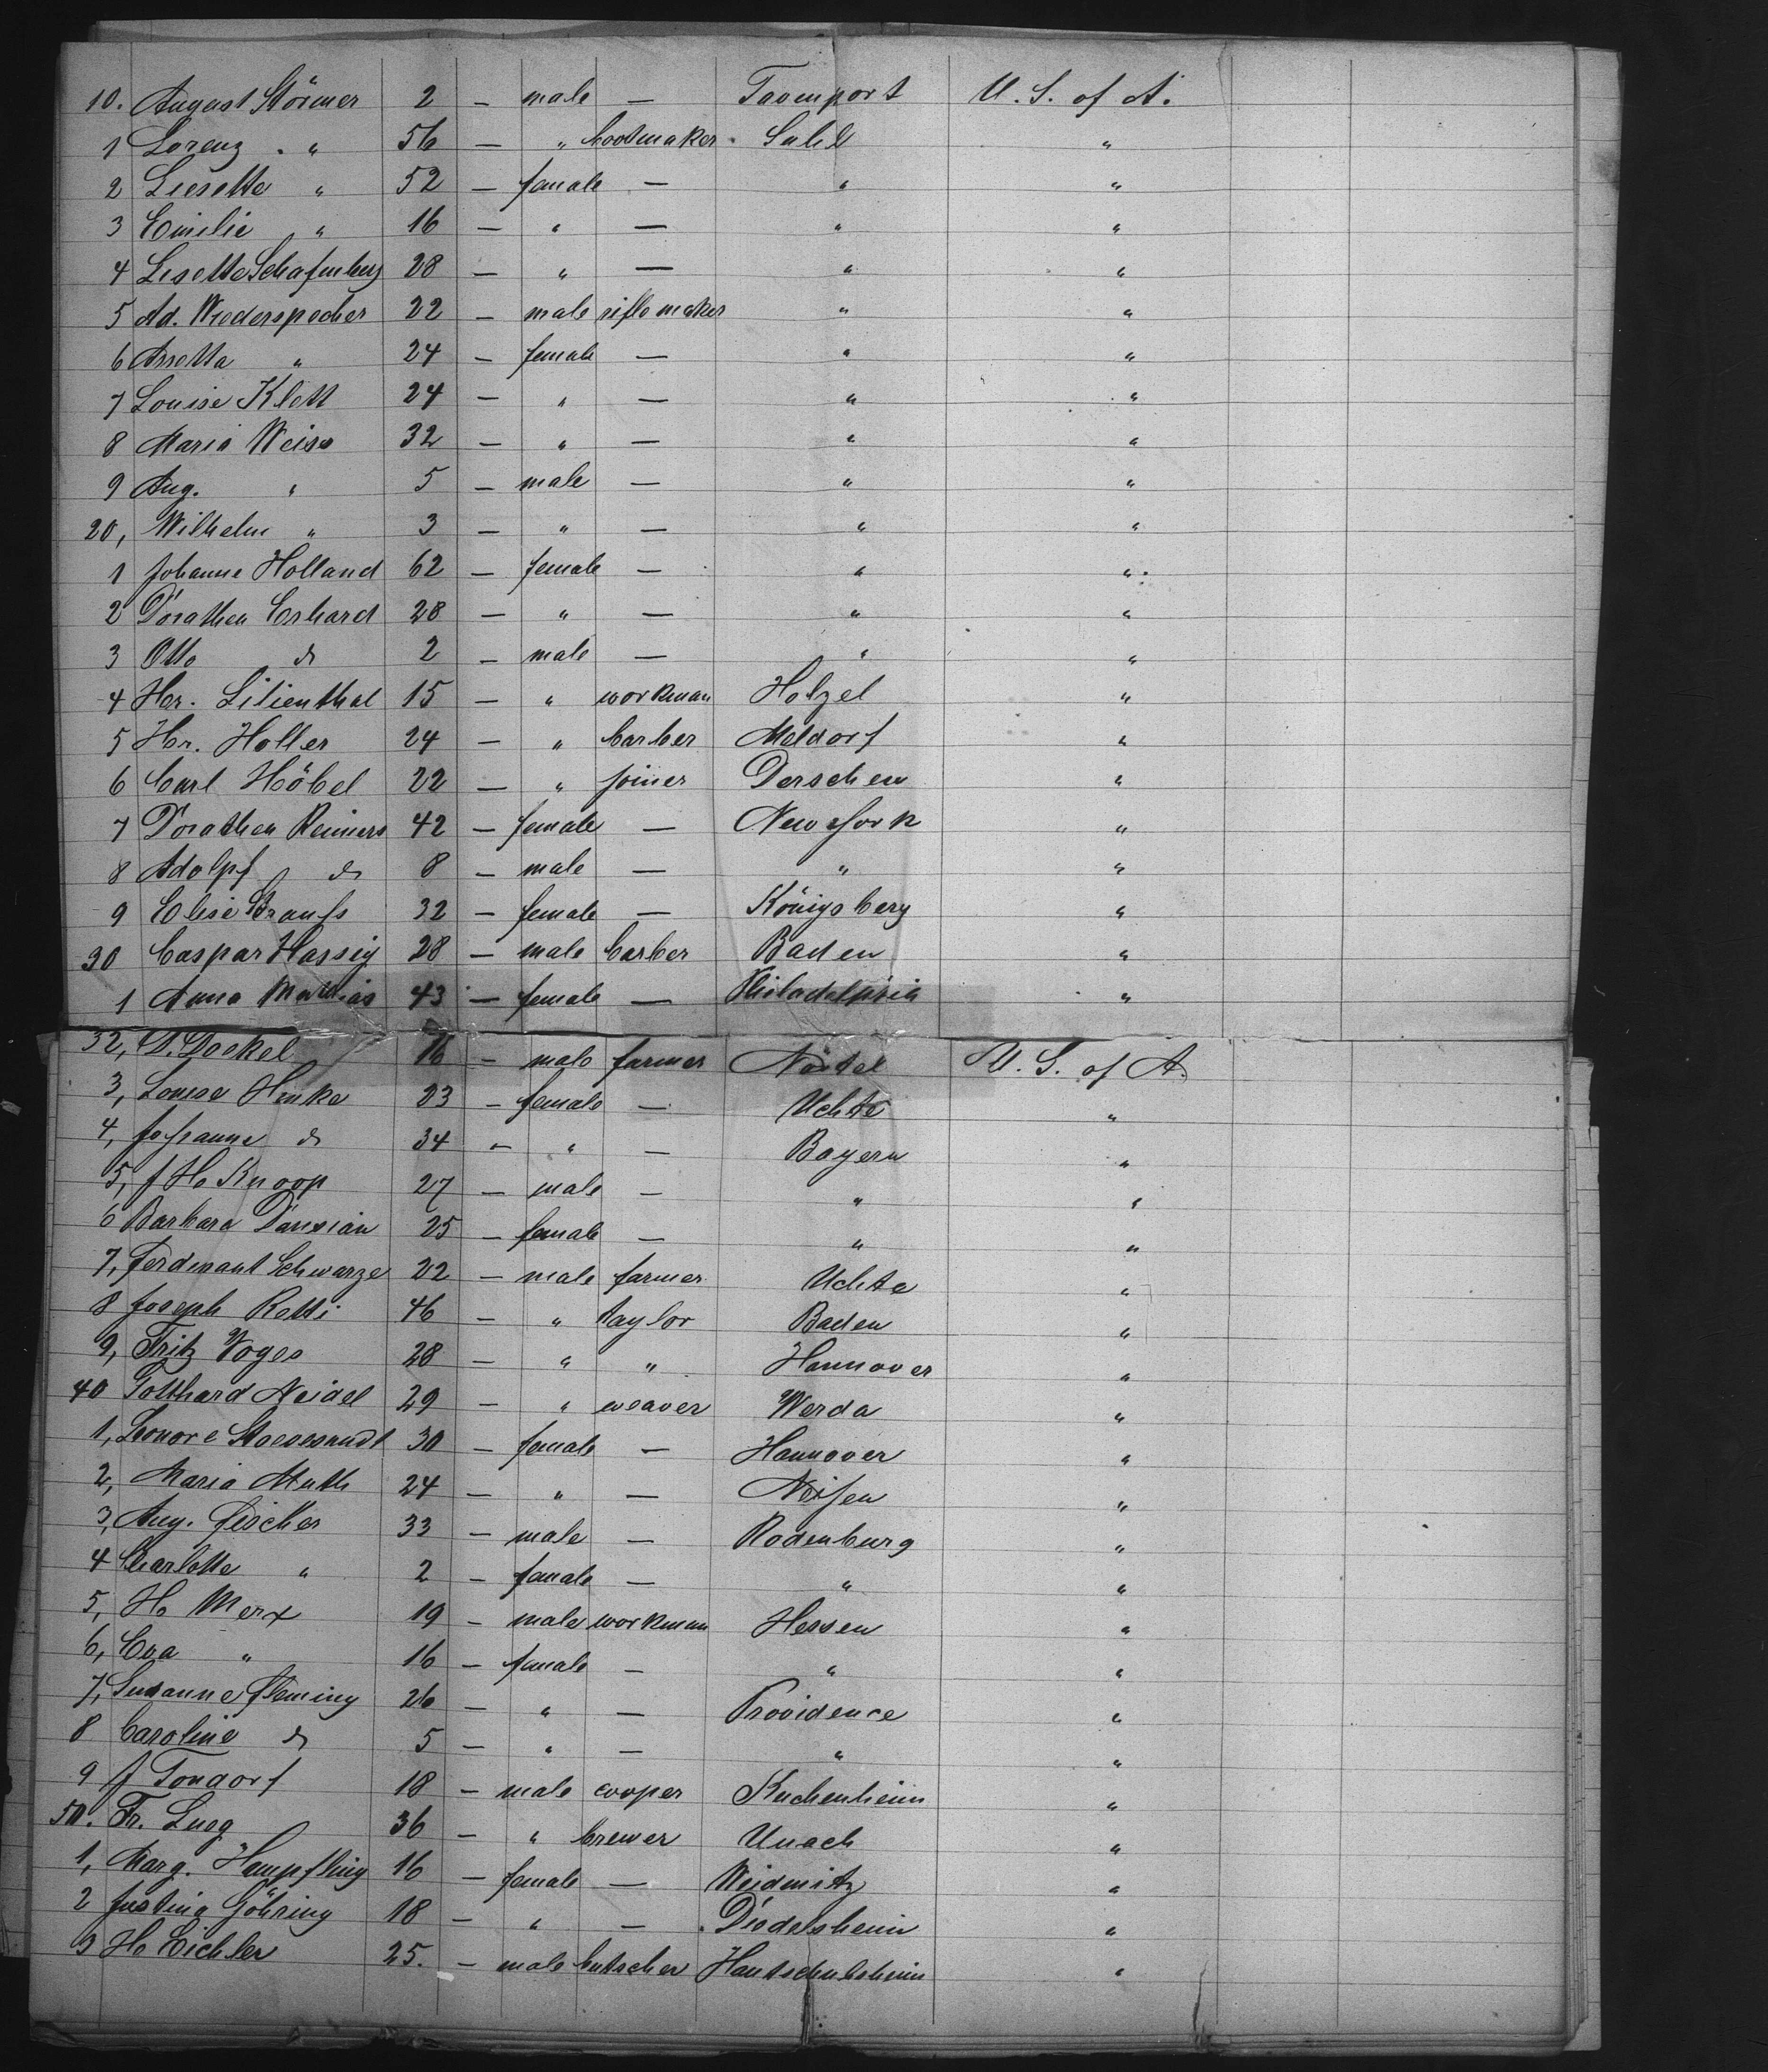 10. August Störmer 2 — male — Tavenport U. S. of A.
1 Lorenz " 56 — " bootmaker Suhl "
2 Liesette " 52 — female — " "
3 Emilie " 16 — " — " "
4 Lisette Schafenberg 28 — " — " "
5 Ad. Wiederspecher 22 — male riflemaker " "
6 Annetta " 24 — female — " "
7 Louise Klett 24 — " — " "
8 Maria Weiss 32 — " — " "
9 Aug. " 5 — male — " "
20, Wilhelm " 3 — " — " "
1 Johanne Holland 62 — female — " "
2 Dorathea Erhard 28 — " — " "
3 Otto do 2 — male — " "
4 Her. Lilienthal 15 — " workman Holzel "
5 Hr. Holler 24 — " barber Meldorf "
6 Carl Höbel 22 — " joiner Derschen "
7 Dorathea Reiners 42 — female — New York "
8 Adolpf do 8 — male — " "
9 Elise Strauss 32 — female — Königsberg "
30 Caspar Hassig 28 — male barber Baden "
1 Anna Mathias 43 — female — Philadelphia "
32, D. Dockel 16 — male farmer Nöstel U. S. of A.
3, Louise Hinke 23 — female — Uchte "
4, Johanne do 34 — " — Bayern "
5, J H Knoop 27 — male — " "
6 Barbara 25 — female — " "
7, Ferdinant Schwarze 22 — male farmer Uchte "
8 Joseph Rotti 46 — " taylor Baden "
9, Fritz Voges 28 — " " Hannover "
40 Gotthard Neidel 29 — " weaver Werda "
1, Leonore 30 — female — Hannover "
2, Maria Muth 24 — " — "
3, Aug. Fischer 33 — male — Rodenburg "
4 Charlotte " 2 — female — " "
5, H. Merx 19 — male workman Hessen "
6, Eva " 16 — female — " "
7, Susanne Fleming 26 — " — Providence "
8 Caroline do 5 — " — " "
9 J Tondorf 18 — male cooper Kuchenheim "
50. Fr. Lueg 36 — " brewer Unach "
1, Marg. Hampfling 16 — female — Weidnitz "
2 Justina Göhring 18 — " — Diedelsheim "
3 H. Eichler 25. — male butscher Hantschulsheim "